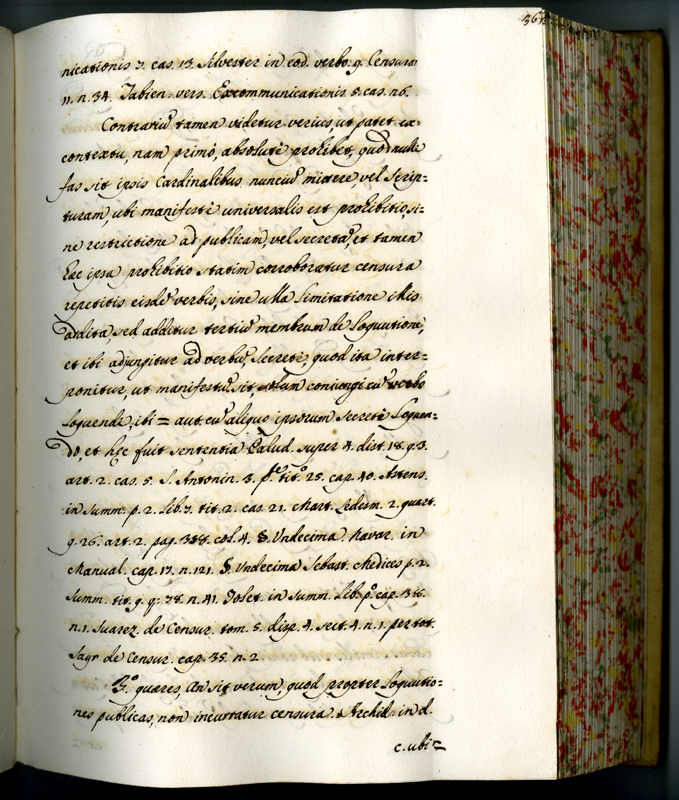 nicationis 7. cas. 13. Silvester in eod. verbo 9. Censura
11. n. 34. Tabien. vers. Excommunicationis 5. cas. n6.
Contrariũ tamen videtur verius, ut patet ex
contextu, nam primò, absolutè prohibet, quod nulli
fas sit ipsis Cardinalibus nunciũ mittere, vel Scrip-
turam, ubi manifestè universalis est prohibitio, si-
ne restrictione ad publicam, vel secretã, et tamen
hæc ipsa prohibitio statim corroboratur censura
repetitis eisdẽ verbis, sine ulla limitatione illis
addita, sed additur tertiũ membrum de loquutione,
et ibi adjungitur adverbiũ, secretè, quod ita inter-
ponitur, ut manifestũ sit, conjungi cũ verbo
loquendi, ibi = aut cũ aliquo ipsorum secretè loquen-
do, et hęc fuit sententia Palud. super 4. dist. 18. q. 3.
art. 2. cas. 5. S. Antonin. 3. p.ͤ tit.º 25. cap. 40. Astens.
in Summ. p. 2. lib. 7. tit. 2. cas. 21. Mart. Ledesm. 2. quart.
q. 26. art. 2. pag. 388. col. 4. §. Undecima Navar. in
Manual. cap. 17. n. 121. §. Undecima Sebast. Medices p. 2.
Summ. tit. 9. q. 78. n. 41. Tolet. in Summ. lib. p.º cap.
n. 1. Suarez. de Censur. tom. 5. disp. 4. sect. 4. n. 1. per tot.
Sayr de Censur. cap. 35. n. 2.
3.º quæres, An sit verum, quod propter loquutio-
nes publicas, non incurratur censura. Archid. in d.
c. ubi